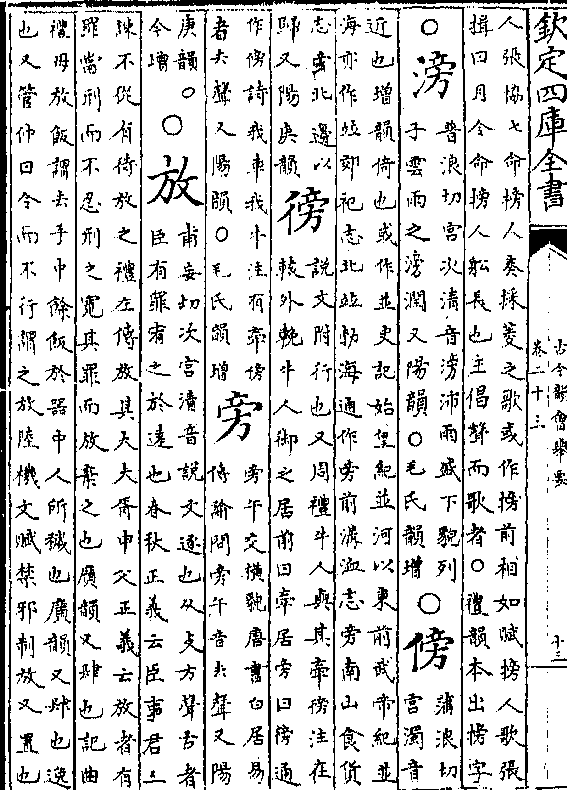 欽定四庫全書
古今韻會舉要
卷二十三
十三
人張協七命榜人奏採菱之歌或作搒前相如賦搒人歌張
揖曰月令命榜人船長也主倡聲而歌者○禮韻本出搒字
○滂
普浪切宮次清音滂沛雨盛下貌列
子雲雨之滂潤又陽韻○毛氏韻增
○傍
蒲浪切
宮濁音
近也增韻倚也或作並史記始皇紀並河以東前武帝紀並
海亦作竝郊祀志北竝勃海通作旁前溝洫志旁南山食貨
志旁北邊以
歸又陽庚韻
徬
說文附行也又周禮牛人與其牽徬注在
轅外輓牛人御之居前曰牽居旁曰徬通
作傍詩我車我牛注有牽徬
者去聲又陽韻○毛氏韻增
旁
旁午交橫貌唐書白居易
傳瀚問旁午音去聲又陽
庚韻○
今增
○放
甫妄切次宮清音說文逐也从攴方聲古者
臣有罪宥之於遠也春秋正義云臣事君三
諫不從有待放之禮左傳放其大夫胥甲父正義云放者有
罪當刑而不忍刑之寛其罪而放棄之也廣韻又肆也記曲
禮毋放飯謂去手中餘飯於器中人所穢也廣韻又肆也逸
也又管仲曰令而不行謂之放陸機文賦禁邪制放又置也